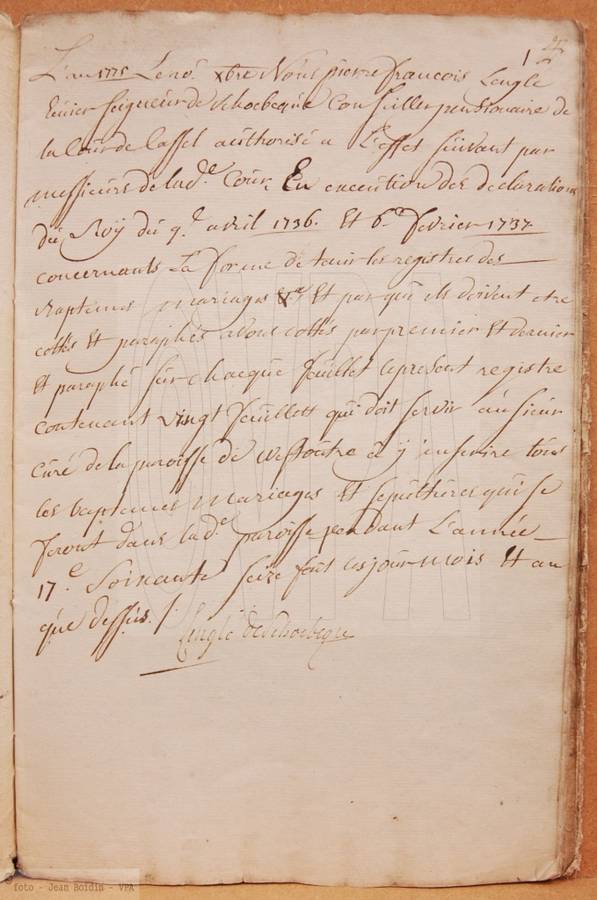 1
L'an 1775 Le xbre Nous pierre francois Lenglé
Ecuier Seigneur de Schoebeque Conseiller pensionaire de
la Cour de Cassel authorisé a L'effet suivant par
messieurs de lade Cour, En execution des declarations
du Roy du 9e avril 1736. Et fevrier 1737
concernants La forme de tenir les registres des
Baptemes mariages &a Et par qui ils doivent etre
cottés Et paraphés avons cottés par premier Et dernier
Et paraphé sur chacque feuillet le present registre
contenant vingt feuillets qui doit servir au sieur
Curé de la paroisse de Westoutre a y inscrire tous
les baptemes Mariages Et sepultures qui se
feront dans lade paroisse pendant L'année
17.e Soixante seize fait les jour mois Et an
que dessus /.
Lenglé de Schoebeque
foto - Jean Boidin - VPA